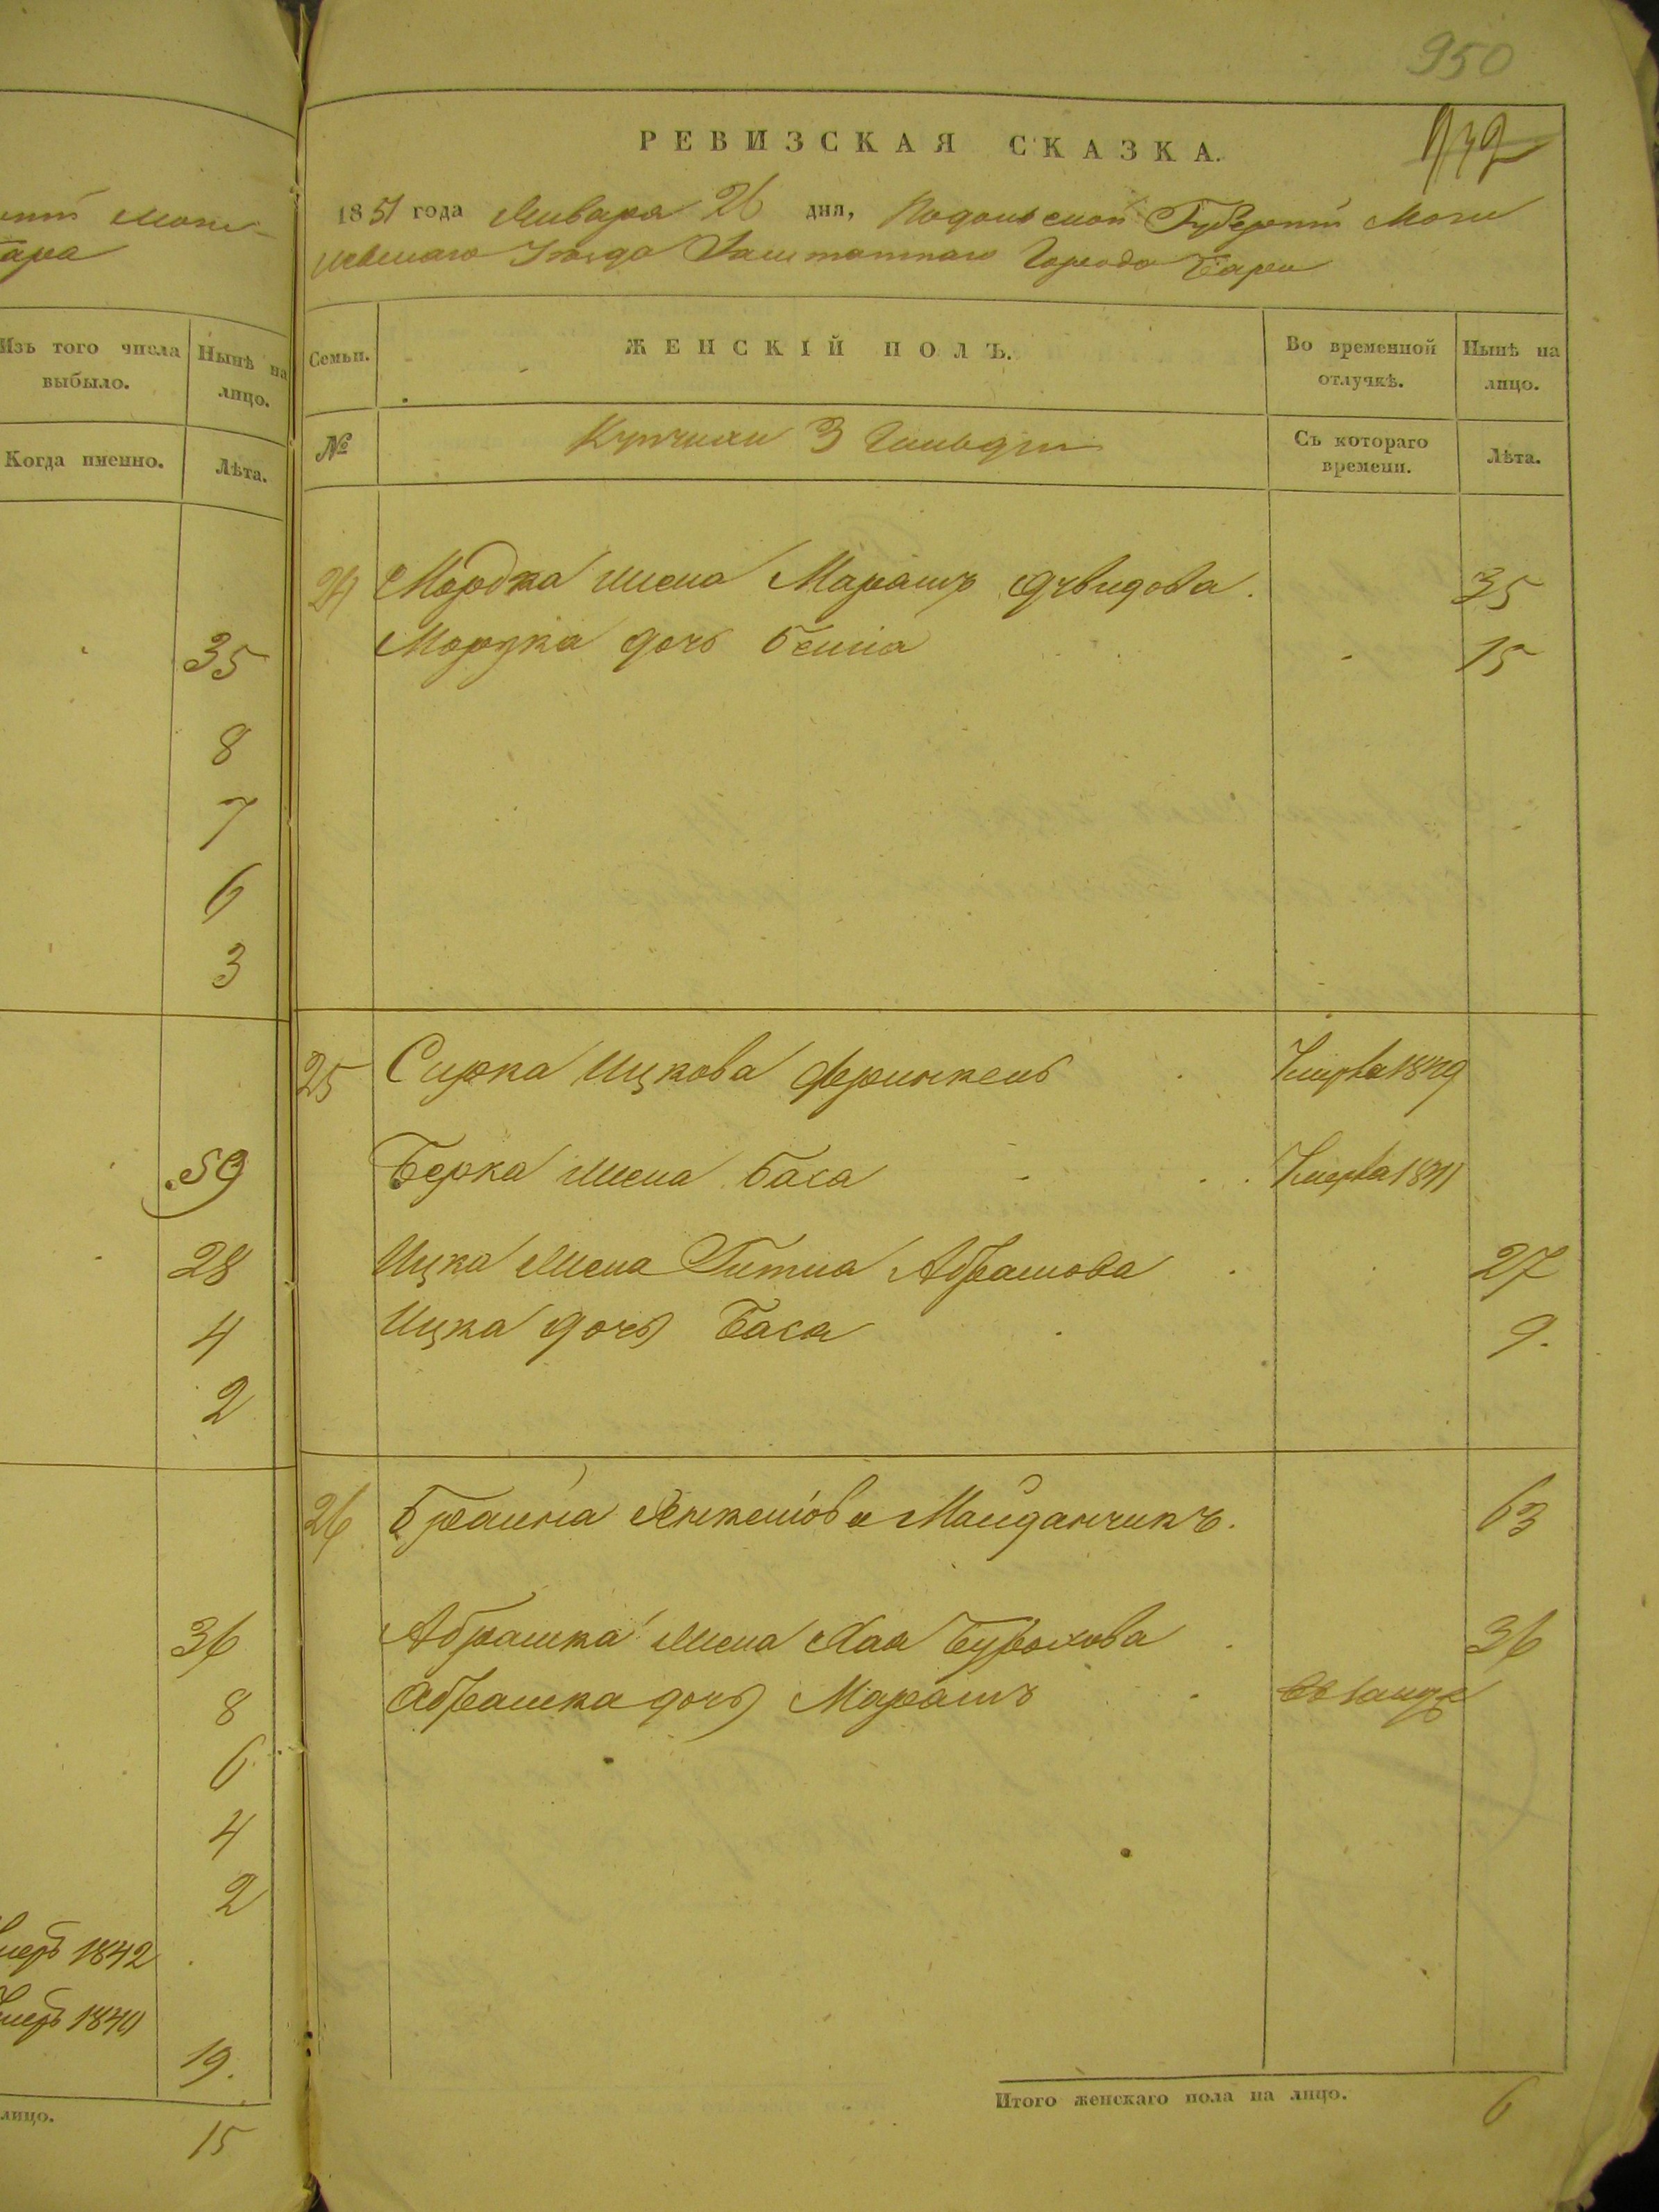 950
РЕВИЗСКАЯ СКАЗКА.
1851 года Января 26 дня, Подольской Губерніи Моги
левскаго Уезда Заштатнаго Города Бара
Изъ того числа выбыло.
Ныньѣ на лицо.
Когда именно.
Лѣта.
35
8
7
6
3
59
28
4
2
36
8
6
4
2
1842
1840
19.
лицо.
15
Семьи.
ЖЕНСКІЙ ПОЛЪ.
Во временной отлучкѣ.
Нынѣ на лицо.
№
Купчихи 3 Гильдіи
Съ котораго времени.
Лѣта.
24 Мордка жена Марьимъ Давидова. 35
Мордка дочь Бейла 15
25 Сирка Ицкова Френкель Умерла 1849
Берка жена Бася Умерла 1841
Ицка жена Гитла Абрамова 27
Ицка дочь Бася 9.
26 Брайна Янкелiова Майданчикъ. 63
Абрашка жена Хая Бурохова 36
Абрашка дочь Марьимъ
Итого женскаго пола на лицо. 6